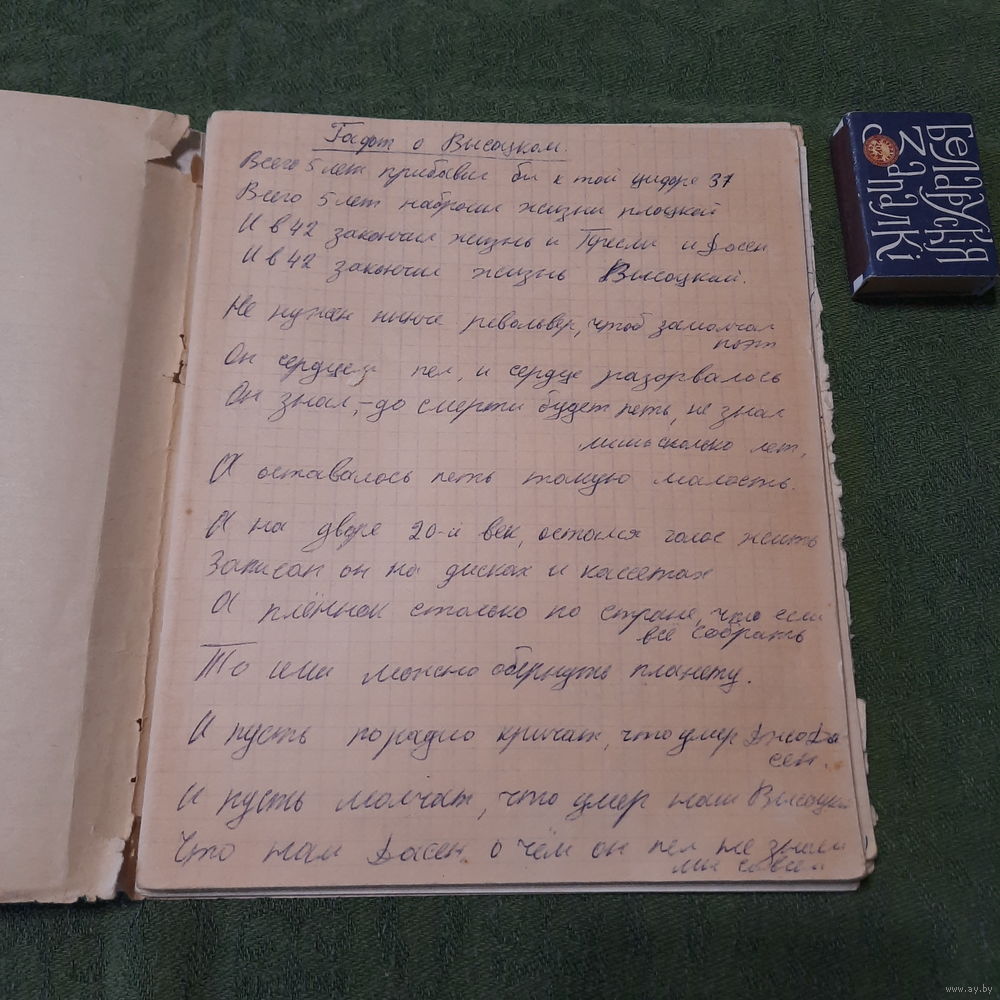 Гафт о Высоцком.
Всего 5 лет прибавил бы к той цифре 37
Всего 5 лет набросил жизни плоцкой
И в 42 закончил жизнь и Пресли и Дасен
И в 42 закончил жизнь Высоцкий.
Не нужен нынче револьвер, чтоб замолчал
поэт
Он сердцем пел, и сердце разорвалось
Он знал, – до смерти будет петь, не знал
лишь сколько лет,
А оставалось петь такую малость.
А на дворе 20-й век, остался голос жить
Записан он на дисках и кассетах
А плёнок столько по стране, что если
всё собрать
То ими можно обернуть планету.
И пусть по радио кричат, что умер Джо Да-
сен.
И пусть молчат, что умер наш Высоцкий
Что нам Дасен, о чём он пел не знаем
мы совсем
БЕЛАРУСКІЯ
ЗАПАЛКІ
www.ay.by